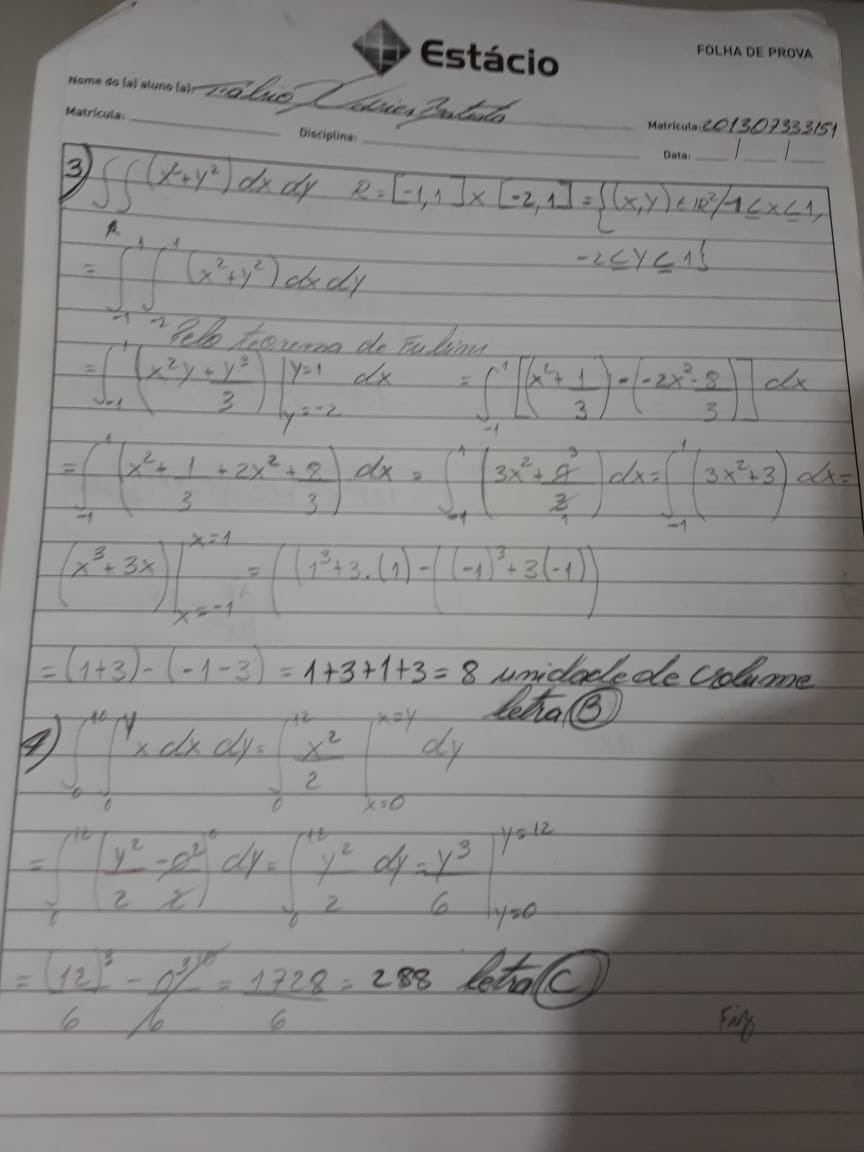 Estácio
FOLHA DE PROVA
Nome do (a) aluno (a):
Matrícula: Disciplina: Matrícula: 201307333151
Data: / /
3) ∫∫ (x²+y²) dx dy R = [-1,1] x [-2,1] = {(x,y) ∈ IR²/-1 ≤ x ≤ 1,
R
-2 ≤ y ≤ 1}
= ∫₋₁¹ ∫₋₂¹ (x²+y²) dx dy
Pelo teorema de Fubini
= ∫₋₁¹ (x²y + y³/3) |y=1 y=-2 dx = ∫₋₁¹ [(x² + 1/3) - (-2x² - 8/3)] dx
= ∫₋₁¹ (x² + 1/3 + 2x² + 8/3) dx = ∫₋₁¹ (3x² + 9/3) dx = ∫₋₁¹ (3x²+3) dx =
(x³ + 3x) |x=1 x=-1 = ((1³+3.(1) - ((-1)³+3(-1))
= (1+3) - (-1-3) = 1+3+1+3 = 8 unidade de volume
letra B
4) ∫₀ ∫₀^y x dx dy = ∫₀¹² x²/2 |x=y x=0 dy
= ∫₀¹² (y²/2 - 0²/2) dy = ∫₀¹² y²/2 dy = y³/6 |y=12 y=0
= (12)³/6 - 0³/6 = 1728/6 = 288 letra C